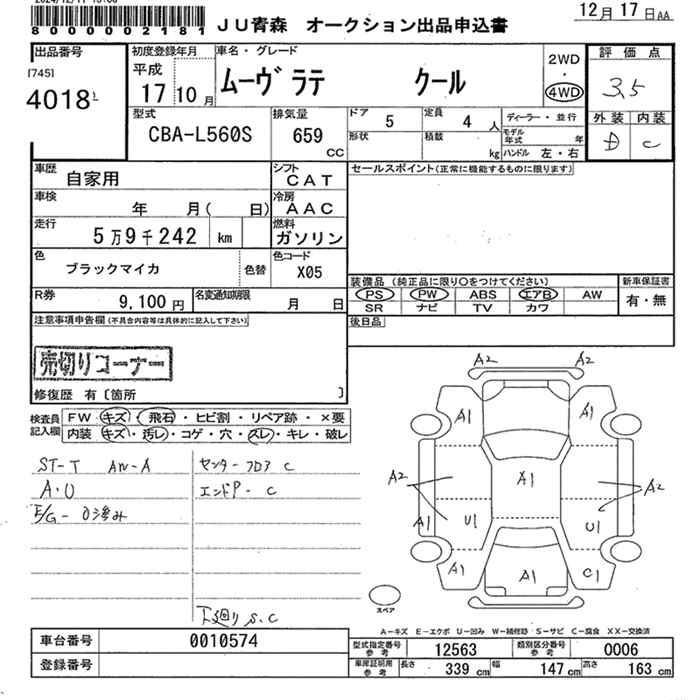 8000002181
JU青森 オークション出品申込書
12月 17日AA
出品番号
[745]
4018
初度登録年月
平成
17年 10月
車名・グレード
ムーヴ ラテ クール
2WD
・
4WD
評価点
3.5
外装 内装
D C
型式
CBA-L560S
排気量
659
CC
ドア 5
定員 4 人
形状
積載 kg
ディーラー・並行
モデル年式 年
ハンドル 左・右
車歴
自家用
シフト
CAT
車検
年 月( 日)
冷房
AAC
走行
5万9千242 km
燃料
ガソリン
色
ブラックマイカ
色替
色コード
X05
R券
9,100円
名変通知期限
月 日
セールスポイント(正常に機能するものに限ります)
装備品 (純正品に限り○をつけてください)
PS PW ABS エアB AW
SR ナビ TV カワ
新車保証書
有・無
後日品
注意事項申告欄(不具合内容等は具体的に記入して下さい)
売切りコーナー
修復歴 有〔箇所 〕
検査員記入欄
FW キズ・飛石・ヒビ割・リペア跡・×要
内装 キズ・汚レ・コゲ・穴・スレ・キレ・破レ
ST-T AW-A
A・U
E/G-O済み
センターフロア C
エンドP-C
下廻り S.C
A2 A2
A1 A1
A2 A1 A2
A1 U1 U1
A1 A1 C1
スペア
A-キズ E-エクボ U-凹み W-補修跡 S-サビ C-腐食 XX-交換済
車台番号
0010574
登録番号
型式指定番号
参考
12563
類別区分番号
参考
0006
車庫証明用
参考
長さ 339 cm
幅 147 cm
高さ 163 cm